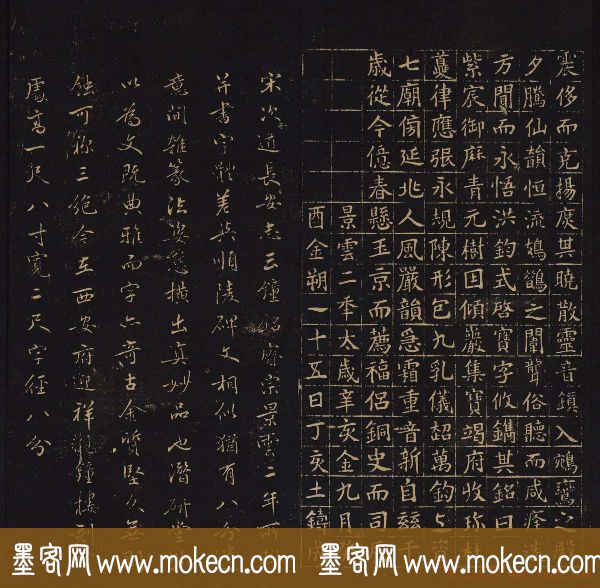 震侈而克揚庶其曉散靈音鎮入鵷鸞之殿
夕騰仙韻恒流鳷鵲之闈聾俗聽而咸痊迷
方聞而永悟洪鈞式啓寶字攸鐫其銘曰
紫宸御曆青元樹因傾巖集寶竭府收珍杜
夔律應張永規陳形包九乳儀超萬鈞上資
七廟傍延兆人風嚴韻急霜重音新自茲千
歲從今億春懸玉京而薦福侶銅史而司
景雲二年太歲辛亥金九月
酉金朔一十五日丁亥土鑄成
宋次道長安志云鐘銘睿宗景雲二年所
并書字體差與順陵碑文相似猶有八分
竟間雜篆法姿態橫出真妙品也潛研堂
以為文既典雅而字亦奇古金質堅久無剝
蝕可稱三絕今在西安府迎祥觀鐘樓刻
處高一尺八寸寬二尺字徑八分
墨客网 www.mokecn.com 墨客网 www.mokecn.com